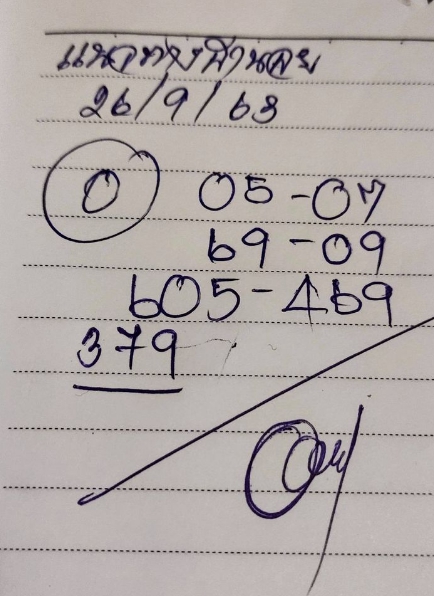 แนวทางฮานอย
26/9/63
0 05-07
69-09
605-469
379